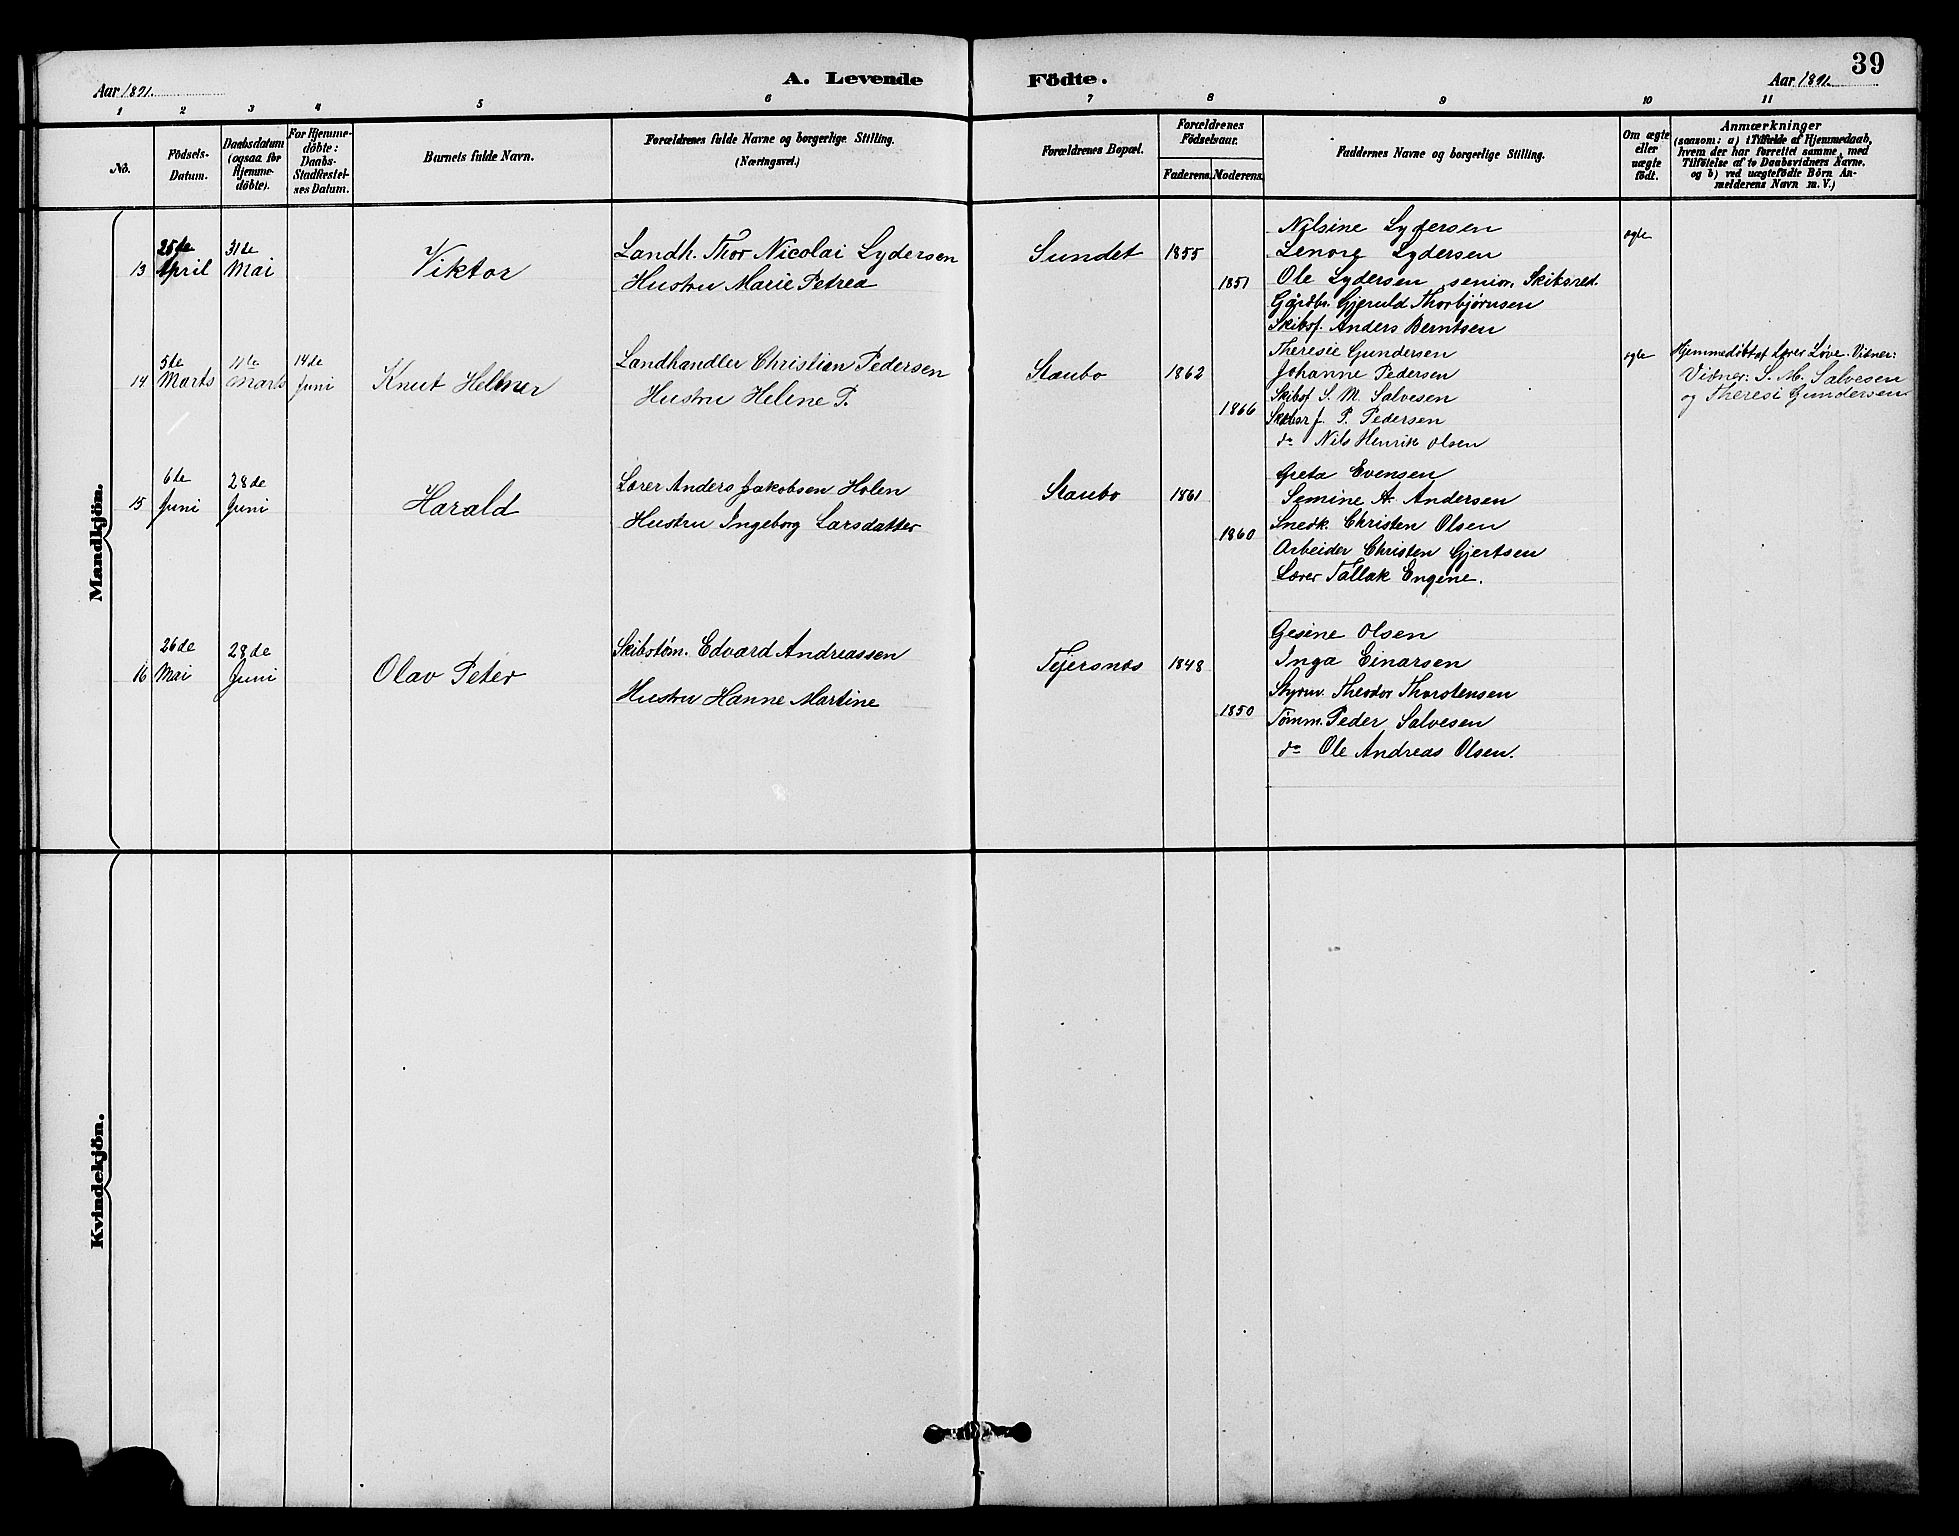 39
A. Levende Födte.
Aar 1891.
Aar 1891.
1 2 3 4 5 6 7 8 9 10 11
No.
Födsels-
Datum.
Daabsdatum
(ogsaa for
Hjemme-
döbte).
For Hjemme-
döbte:
Daabs-
Stadfestel-
ses Datum.
Barnets fulde Navn.
Forældrenes fulde Navne og borgerlige Stilling.
(Næringsvei.)
Forældrenes Bopæl.
Forældrenes
Födselsaar.
Faderens. Moderens.
Faddernes Navne og borgerlige Stilling.
Om ægte
eller
uægte
födt.
Anmærkninger
(saasom: a) i Tilfælde af Hjemmedaab,
hvem der har forrettet samme, med
Tilföielse af to Daabsvidners Navne,
og b) ved uægtefödte Börn An-
melderens Navn m. V.)
Mandkjön.
13
25de
April
31de
Mai
Viktor
Landh. Thor Nicolai Lydersen
Hustru Marie Petrea
Sundet
1855
1851
Nilsine Lydersen
Lenore Lydersen
Ole Lydersen senior, Skibsred.
Gårdbr. Gjeruld Thorbjørnsen
Skibsf. Anders Berntsen
egte
14
5te
Marts
11te
Marts
14de
Juni
Knut Helmer
Landhandler Christian Pedersen
Hustru Helene P.
Staubo
1862
1866
Theresie Gundersen
Johanne Pedersen
Skibsf. S. M. Salvesen
P. Pedersen
do Nils Henrik Olsen
egte
Hjemmedøbt af Lærer Løve. Vidner:
Vidner: S. M. Salvesen
og Theresi Gundersen
15
6te
Juni
28de
Juni
Harald
Lærer Anders Jakobsen Holen
Hustru Ingeborg Larsdatter
Staubo
1861
1860
Greta Evensen
Semine A. Andersen
Snedk. Christen Olsen
Arbeider Christen Gjertsen
Lærer Tallak Engene.
16
26de
Mai
28de
Juni
Olav Peter
Skibstøm. Edvard Andreassen
Hustru Hanne Martine
Tejersnæs
1848
1850
Gesine Olsen
Inga Einarsen
Styrm. Theodor Thorstensen
Tømm. Peder Salvesen
do Ole Andreas Olsen.
Kvindekjön.